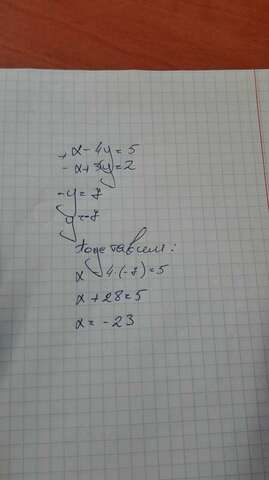 + x - 4y = 5
- x + 3y = 2
- y = 7
y = -7
Подставим:
x 4·(-7) = 5
x + 28 = 5
x = - 23